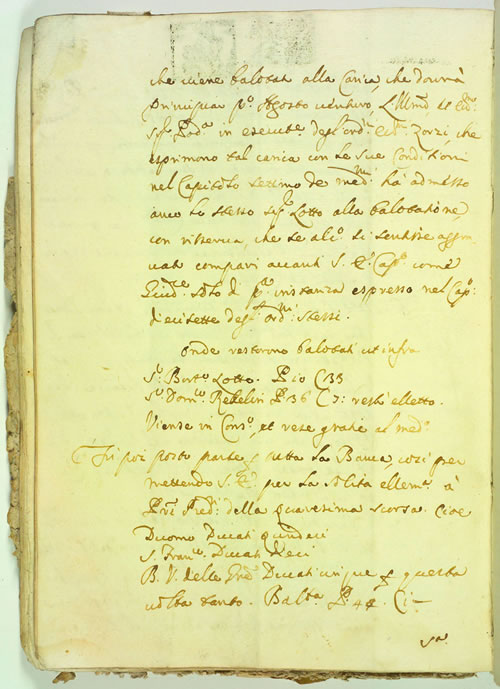 che viene balotati alla Carica, che dovrà
principiar p:º Agosto venturo L'Illmº, et Ecc:º
Sigr Podª in esecutⁿᵉ degl'ord:ⁿⁱ Ecc:ᵐᵒ Zorzi, che
esprimono tal carica con le sue Conditioni
nel Capitolo settimo de med:ᵐⁱ ha admesso
anco lo stesso Sigʳ Lotto alla balotatione
con riserva, che se alc:º si sentisse aggra-
vato compari avanti S. E: Capº come
Giud:ᶜᵉ di pª instanza espresso nel Capº:
diecisette degl'ord:ⁿⁱ stessi.
onde restorono balotati ut infra
Sʳ Bortº Lotto. P. 10 C 33
Sʳ Domᶜº Rebelini P. 36 C 7: restò elletto.
Viense in Consº, et rese gratie al medº
Fù poi posto parte p tutta la Banca, cosi per
mettendo S. E: per la solita ellemª à
Pri Predʳⁱ della quaresima scorsa. Cioè
Duomo Ducati quindeci
S. Francº. Ducati Dieci
B. V. delle Ducati cinque p questa
volta tanto. Baltª P. 44 C: —